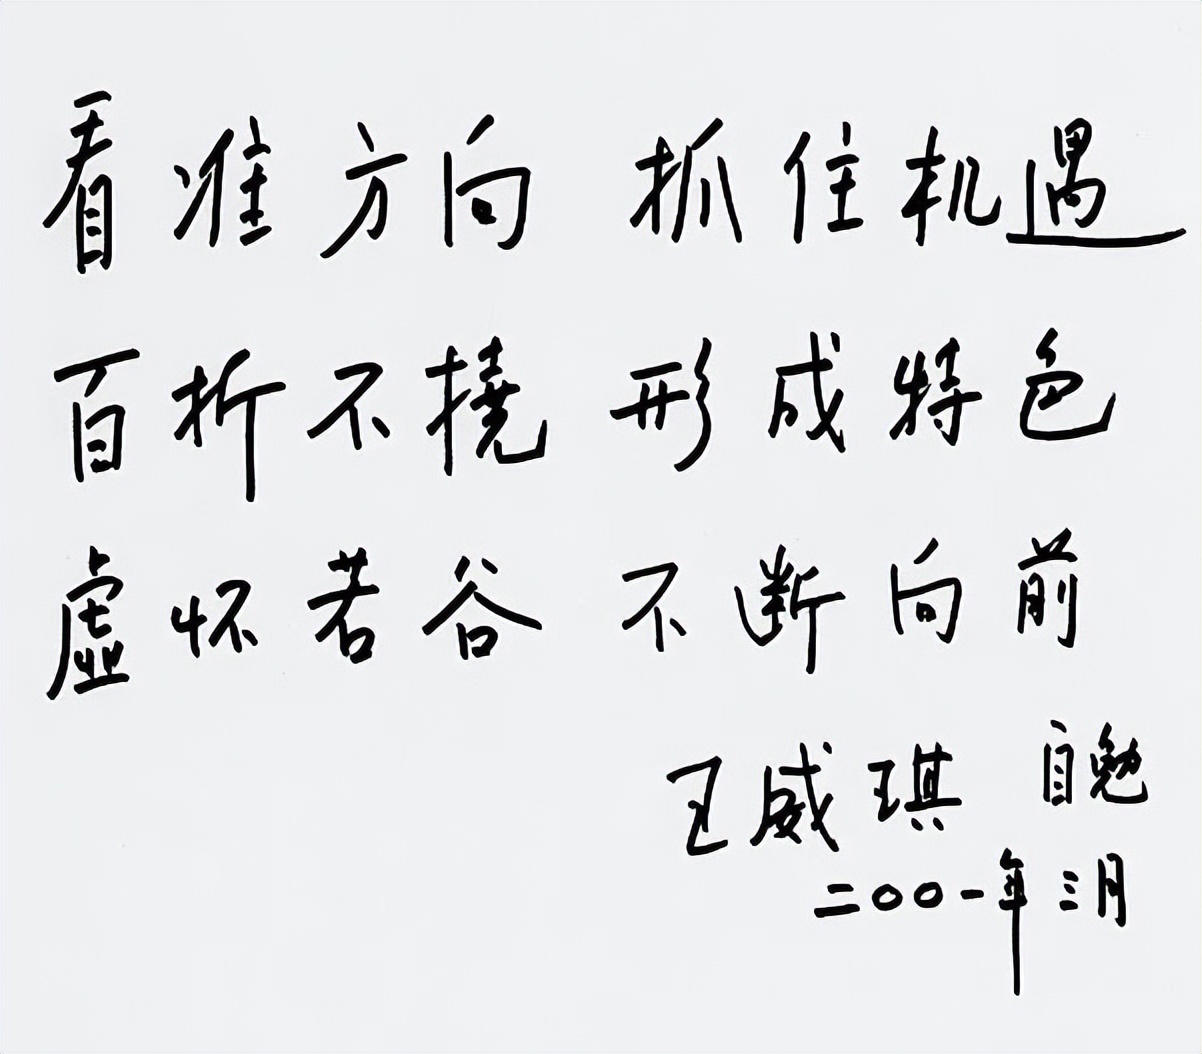 看准方向 抓住机遇
百折不挠 形成特色
虚怀若谷 不断向前
王威琪 自勉
二〇〇一年三月